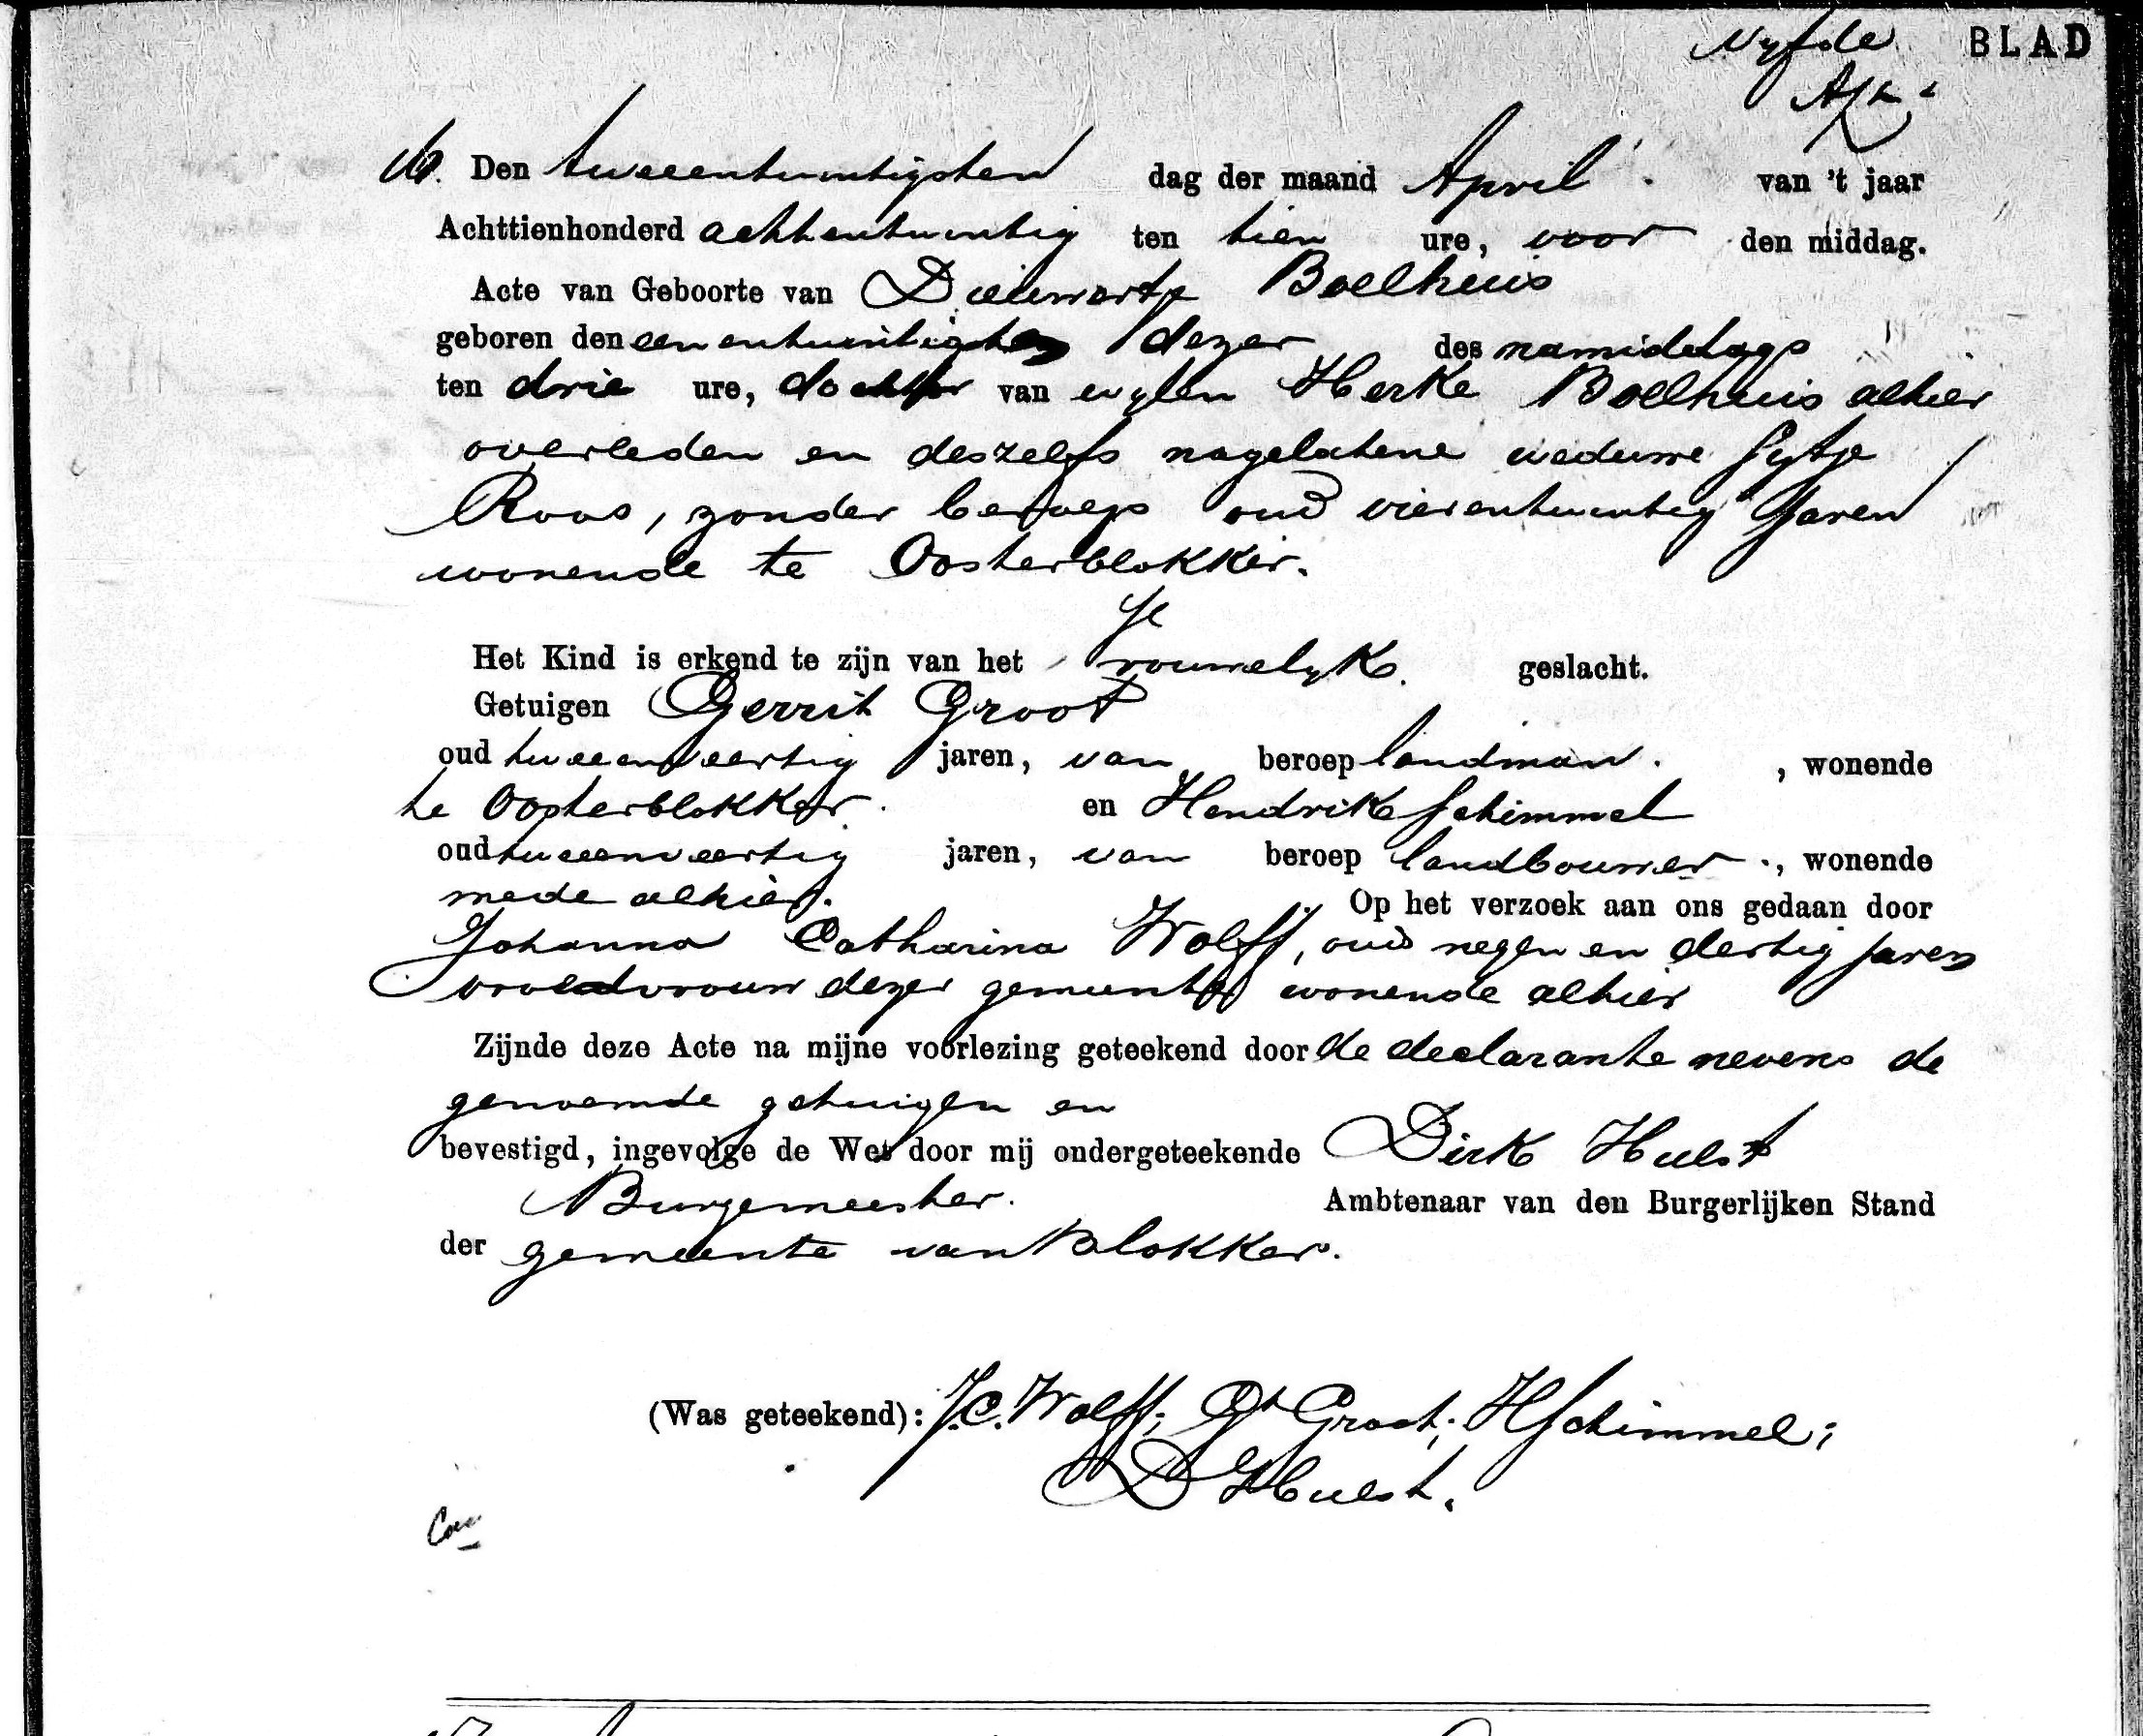 Vyfde BLAD
16. Den tweeentwintigsten dag der maand April van 't jaar
Achttienhonderd achtentwintig ten tien ure, voor den middag.
Acte van Geboorte van Dieuwertje Boelhuis
geboren den eenentwintigsten dezer des namiddags
ten drie ure, dochter van wylen Harke Boelhuis alhier
overleden en deszelfs nagelatene weduwe Sytje
Roos, zonder beroep oud vierentwintig Jaren
wonende te Oosterblokker.
Het Kind is erkend te zijn van het vrouwelyk geslacht.
Getuigen Gerrit Groot
oud tweeenveertig jaren, van beroep landman. , wonende
te Oosterblokker. en Hendrik Schimmel
oud tweeenveertig jaren, van beroep landbouwer ., wonende
mede alhier. Op het verzoek aan ons gedaan door
Johanna Catharina Wolff, oud negen en dertig Jaren
vroedvrouw dezer gemeente wonende alhier
Zijnde deze Acte na mijne voorlezing geteekend door de declarante nevens de
genoemde getuigen en
bevestigd, ingevolge de Wet door mij ondergeteekende Dirk Hulst
Burgemeester. Ambtenaar van den Burgerlijken Stand
der gemeente van Blokker.
(Was geteekend): J.C. Wolff; Gt Groot; HSchimmel;
D Hulst.